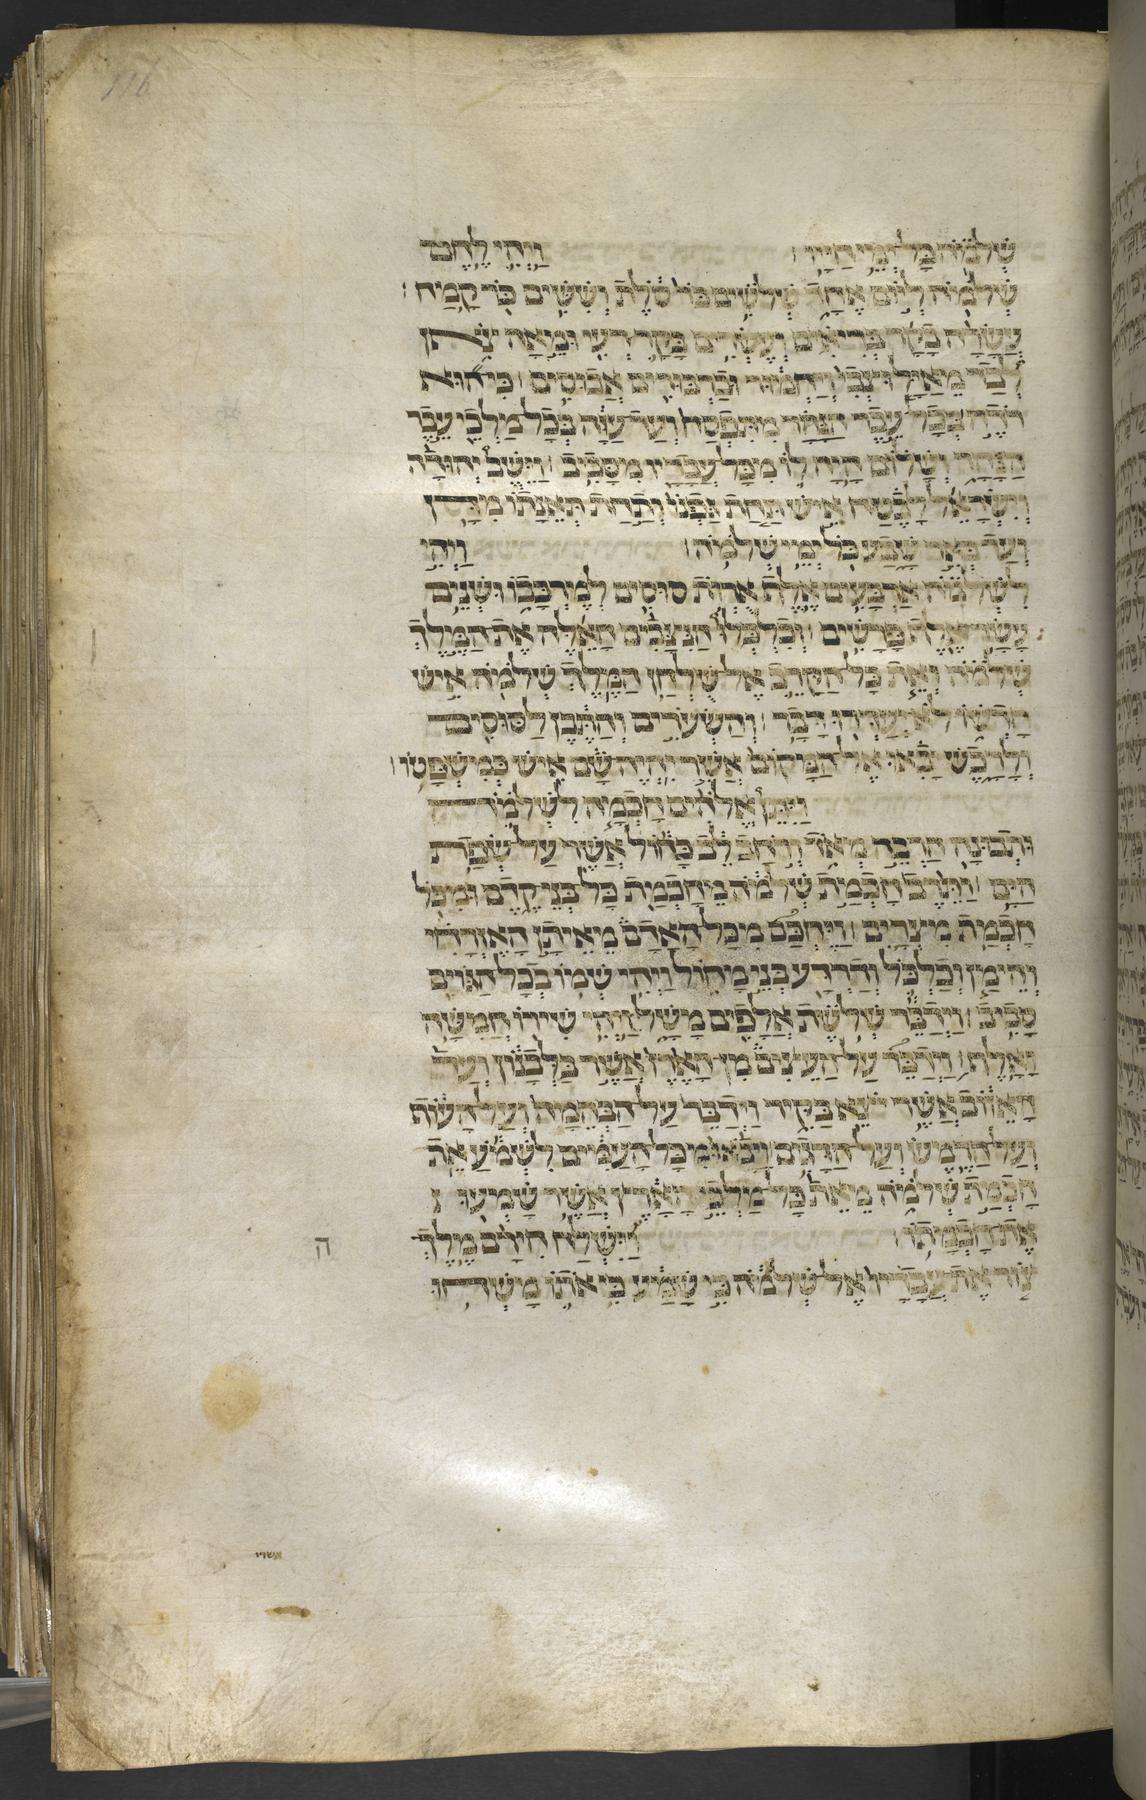 116
שְׁלֹמֹה כָּל יְמֵי חַיָּיו׃ וַיְהִי לֶחֶם
שְׁלֹמֹה לְיוֹם אֶחָד שְׁלֹשִׁים כֹּר סֹלֶת וְשִׁשִּׁים כֹּר קָמַח׃
עֲשָׂרָה בָקָר בְּרִאִים וְעֶשְׂרִים בָּקָר רְעִי וּמֵאָה צֹאן
לְבַד מֵאַיָּל וּצְבִי וְיַחְמוּר וּבַרְבֻּרִים אֲבוּסִים׃ כִּי הוּא
רֹדֶה בְּכָל עֵבֶר הַנָּהָר מִתִּפְסַח וְעַד עַזָּה בְּכָל מַלְכֵי עֵבֶר
הַנָּהָר וְשָׁלוֹם הָיָה לוֹ מִכָּל עֲבָרָיו מִסָּבִיב׃ וַיֵּשֶׁב יְהוּדָה
וְיִשְׂרָאֵל לָבֶטַח אִישׁ תַּחַת גַּפְנוֹ וְתַחַת תְּאֵנָתוֹ מִדָּן
וְעַד בְּאֵר שָׁבַע כֹּל יְמֵי שְׁלֹמֹה׃ וַיְהִי
לִשְׁלֹמֹה אַרְבָּעִים אֶלֶף אֻרְוֹת סוּסִים לְמֶרְכָּבוֹ וּשְׁנֵים
עָשָׂר אֶלֶף פָּרָשִׁים׃ וְכִלְכְּלוּ הַנִּצָּבִים הָאֵלֶּה אֶת הַמֶּלֶךְ
שְׁלֹמֹה וְאֵת כָּל הַקָּרֵב אֶל שֻׁלְחַן הַמֶּלֶךְ שְׁלֹמֹה אִישׁ
חָדְשׁוֹ לֹא יְעַדְּרוּ דָּבָר׃ וְהַשְּׂעֹרִים וְהַתֶּבֶן לַסּוּסִים
וְלָרָכֶשׁ יָבִאוּ אֶל הַמָּקוֹם אֲשֶׁר יִהְיֶה שָּׁם אִישׁ כְּמִשְׁפָּטוֹ׃
וַיִּתֵּן אֱלֹהִים חָכְמָה לִשְׁלֹמֹה
וּתְבוּנָה הַרְבֵּה מְאֹד וְרֹחַב לֵב כַּחוֹל אֲשֶׁר עַל שְׂפַת
הַיָּם׃ וַתֵּרֶב חָכְמַת שְׁלֹמֹה מֵחָכְמַת כָּל בְּנֵי קֶדֶם וּמִכֹּל
חָכְמַת מִצְרָיִם׃ וַיֶּחְכַּם מִכָּל הָאָדָם מֵאֵיתָן הָאֶזְרָחִי
וְהֵימָן וְכַלְכֹּל וְדַרְדַּע בְּנֵי מָחוֹל וַיְהִי שְׁמוֹ בְכָל הַגּוֹיִם
סָבִיב׃ וַיְדַבֵּר שְׁלֹשֶׁת אֲלָפִים מָשָׁל וַיְהִי שִׁירוֹ חֲמִשָּׁה
וָאָלֶף׃ וַיְדַבֵּר עַל הָעֵצִים מִן הָאֶרֶז אֲשֶׁר בַּלְּבָנוֹן וְעַד
הָאֵזוֹב אֲשֶׁר יֹצֵא בַּקִּיר וַיְדַבֵּר עַל הַבְּהֵמָה וְעַל הָעוֹף
וְעַל הָרֶמֶשׂ וְעַל הַדָּגִים׃ וַיָּבֹאוּ מִכָּל הָעַמִּים לִשְׁמֹעַ אֵת
חָכְמַת שְׁלֹמֹה מֵאֵת כָּל מַלְכֵי הָאָרֶץ אֲשֶׁר שָׁמְעוּ
אֶת חָכְמָתוֹ׃ וַיִּשְׁלַח חִירָם מֶלֶךְ
ה
צוֹר אֶת עֲבָדָיו אֶל שְׁלֹמֹה כִּי שָׁמַע כִּי אֹתוֹ מָשְׁחוּ